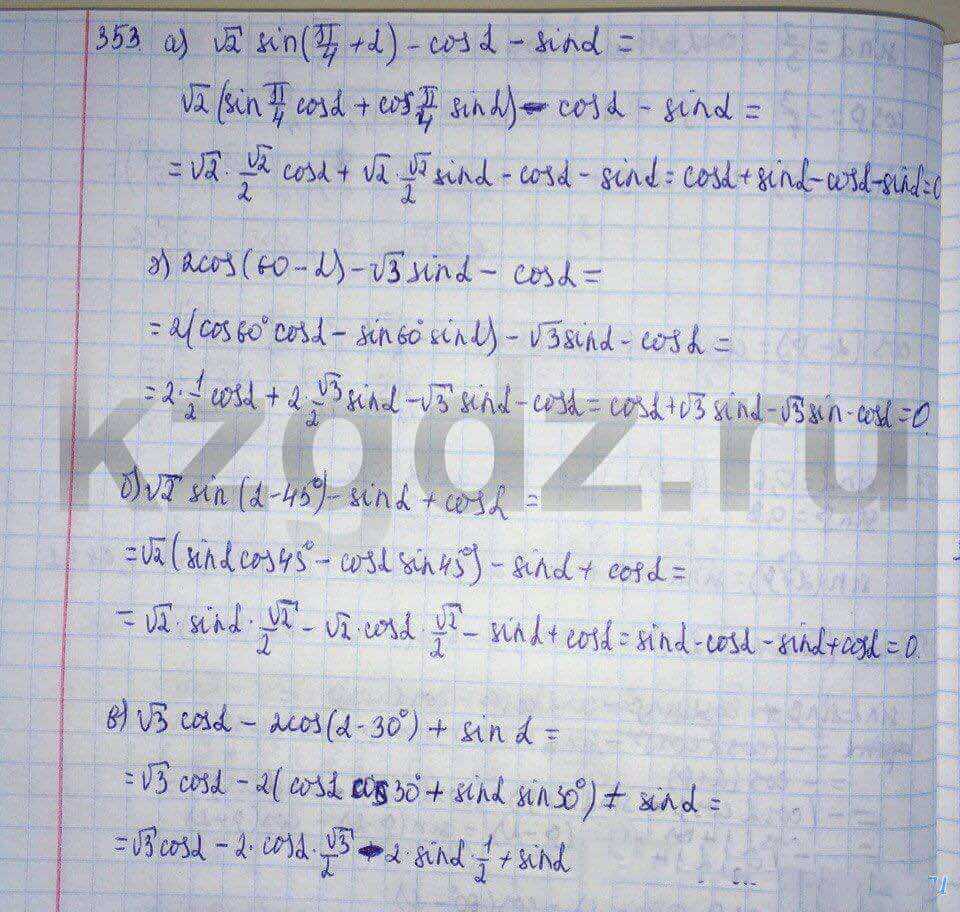 353 а) √2 sin(π/4 + α) - cosα - sinα =
√2 (sin π/4 cosα + cos π/4 sinα) - cosα - sinα =
= √2 · √2/2 cosα + √2 · √2/2 sinα - cosα - sinα = cosα + sinα - cosα - sinα = 0
г) 2cos(60 - α) - √3 sinα - cosα =
= 2(cos60° cosα - sin60° sinα) - √3 sinα - cosα =
= 2 · 1/2 cosα + 2 · √3/2 sinα - √3 sinα - cosα = cosα + √3 sinα - √3 sin - cosα = 0.
б) √2 sin(α - 45°) - sinα + cosα =
= √2 (sinα cos45° - cosα sin45°) - sinα + cosα =
= √2 · sinα · √2/2 - √2 · cosα · √2/2 - sinα + cosα = sinα - cosα - sinα + cosα = 0.
в) √3 cosα - 2cos(α - 30°) + sinα =
= √3 cosα - 2(cosα cos30° + sinα sin30°) + sinα =
= √3 cosα - 2 · cosα · √3/2 - 2 · sinα · 1/2 + sinα
kzgdz.ru